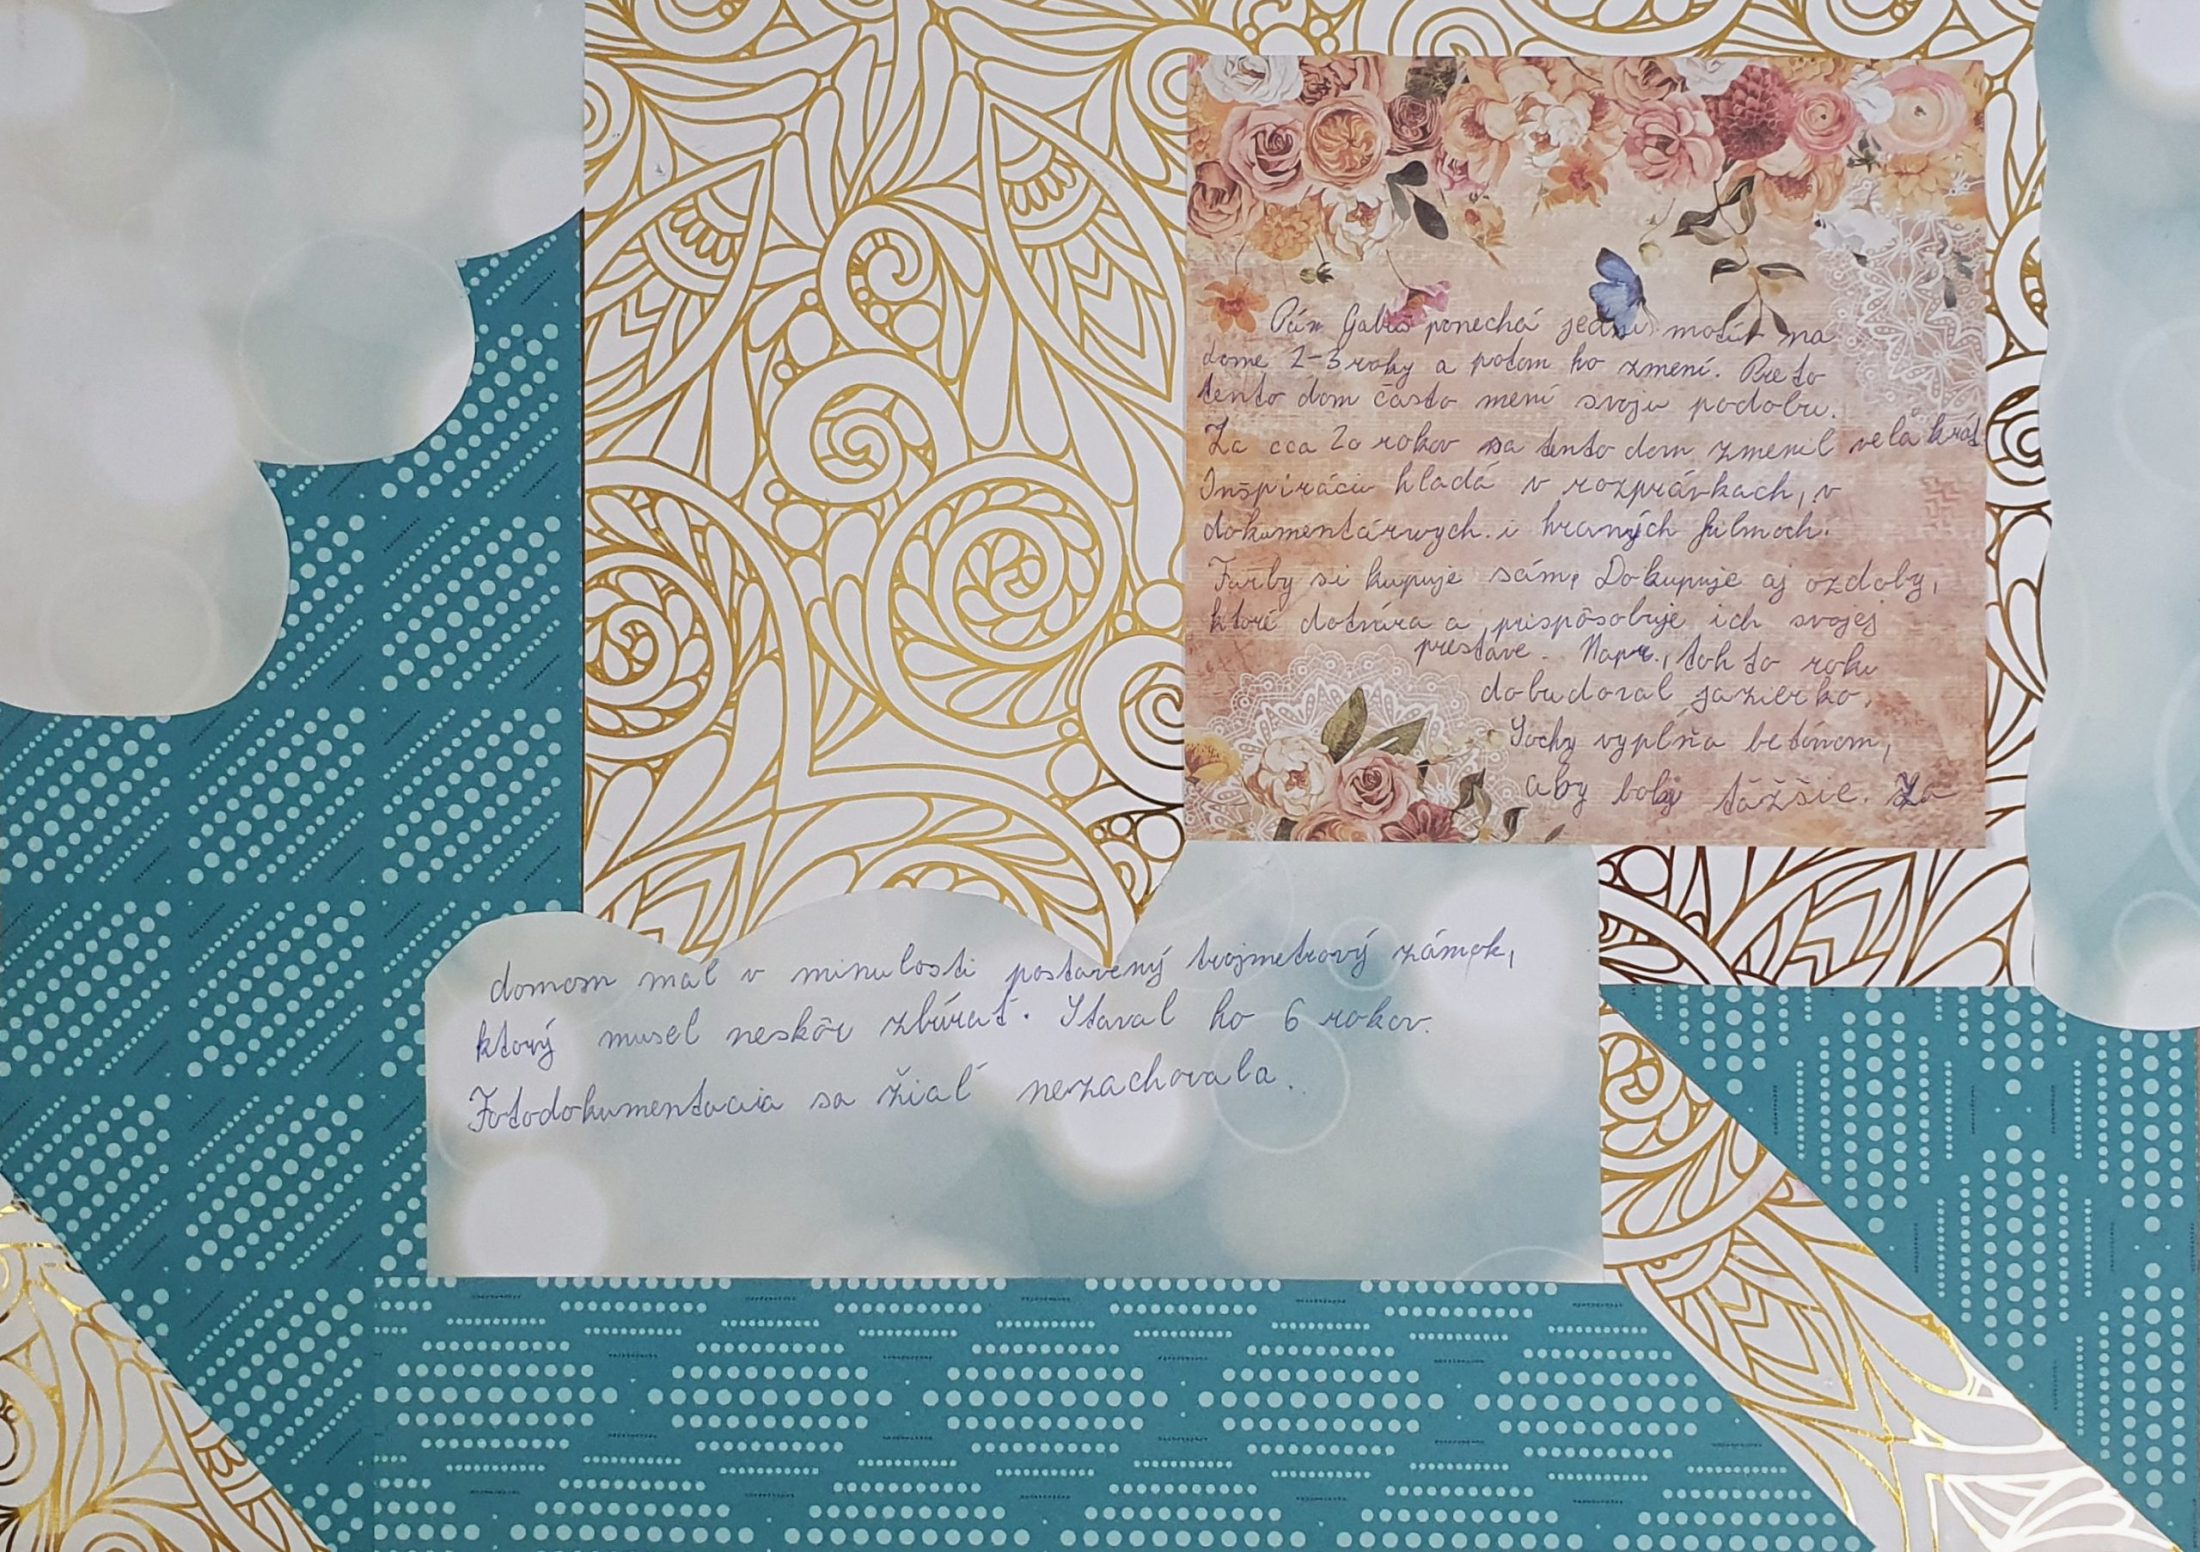 Pán Gabriš ponechá jeden motív na
dome 2-3 roky a potom ho zmení. Preto
tento dom často mení svoju podobu.
Za cca 20 rokov sa tento dom zmenil veľa krát.
Inšpiráciu hladá v rozprávkach, v
dokumentárnych i hraných filmoch.
Farby si kupuje sám. Dokupuje aj ozdoby,
ktoré dotvára a prispôsobuje ich svojej
prestave. Napr., toh to roku
dobudoval jazierko.
Sochy vyplňa betónom,
aby boly tăžšie. Za
domom mal v minulosti postavený trojmetrový zámok,
ktorý musel neskôr zbúrať. Staval ho 6 rokov.
Fotodokumentacia sa žiaľ nezachovala.